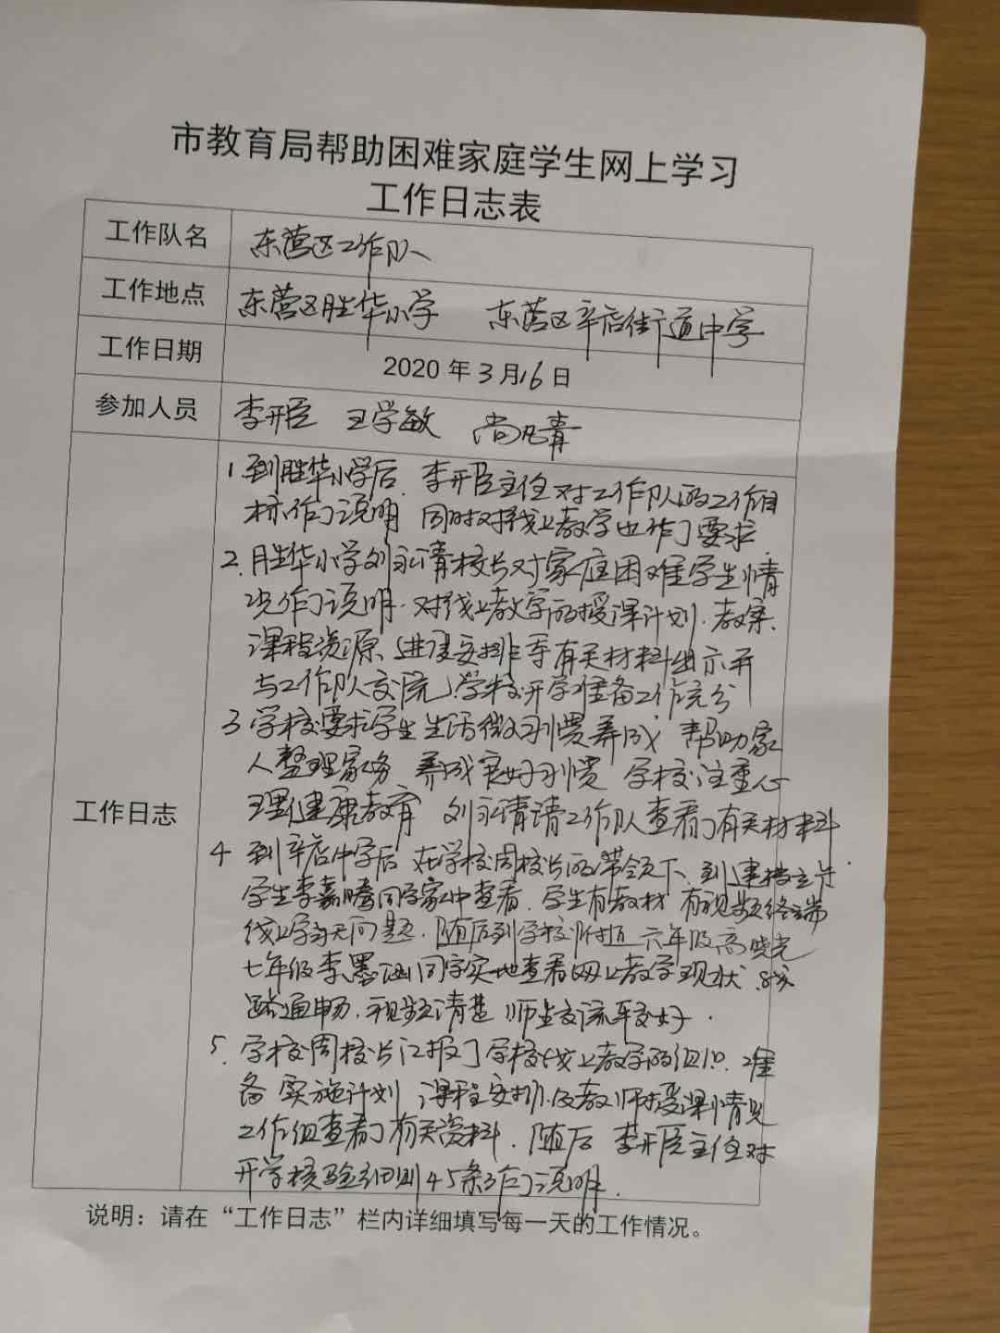 市教育局帮助困难家庭学生网上学习
工作日志表
工作队名 东营区工作队
工作地点 东营区胜华小学 东营区辛店街道中学
工作日期 2020年3月16日
参加人员 李开臣 王学敏 尚凡青
工作日志
1.到胜华小学后.李开臣主任对工作队的工作目
标作了说明 同时对线上教学也作了要求.
2.胜华小学刘永清校长对家庭困难学生情
况作了说明.对线上教学的授课计划.教案.
课程资源、进度安排等有关材料出示并
与工作队交流,学校开学准备工作充分
3 学校要求学生生活微习惯养成 帮助家
人整理家务 养成良好习惯 学校注重心
理健康教育 刘永清请工作队查看了有关材料
4 到辛店中学后 在学校周校长的带领下、到建档立卡
学生李嘉腾同学家中查看.学生有教材 有视频终端
线上学习无问题.随后到学校 六年级高晓光
七年级李墨涵同学实地查看网上教学现状.线
路通畅.视频清楚 师生交流较好.
5.学校周校长汇报了学校线上教学的组织.准
备 实施计划 课程安排.及教师授课情况
工作组查看了有关资料.随后 李开臣主任对
开学核验细则45条作了说明.
说明：请在“工作日志”栏内详细填写每一天的工作情况。